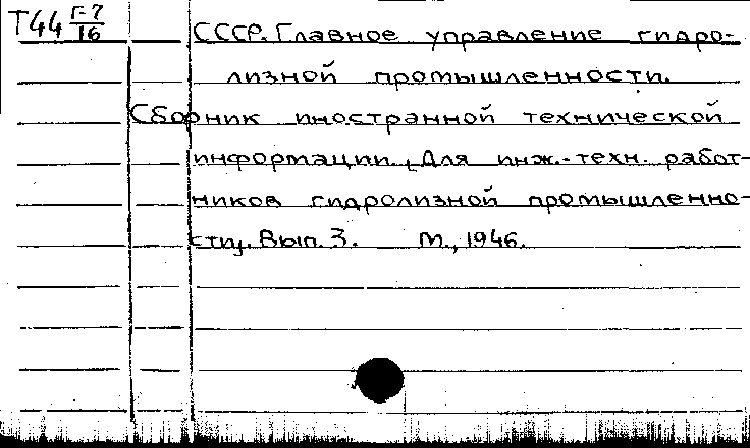 Т44 Г-7/16
СССР. Главное управление гидро-
лизной промышленности.
Сборник иностранной технической
информации. [Для инж.-техн. работ-
ников гидролизной промышленно-
сти]. Вып. 3. М., 1946.